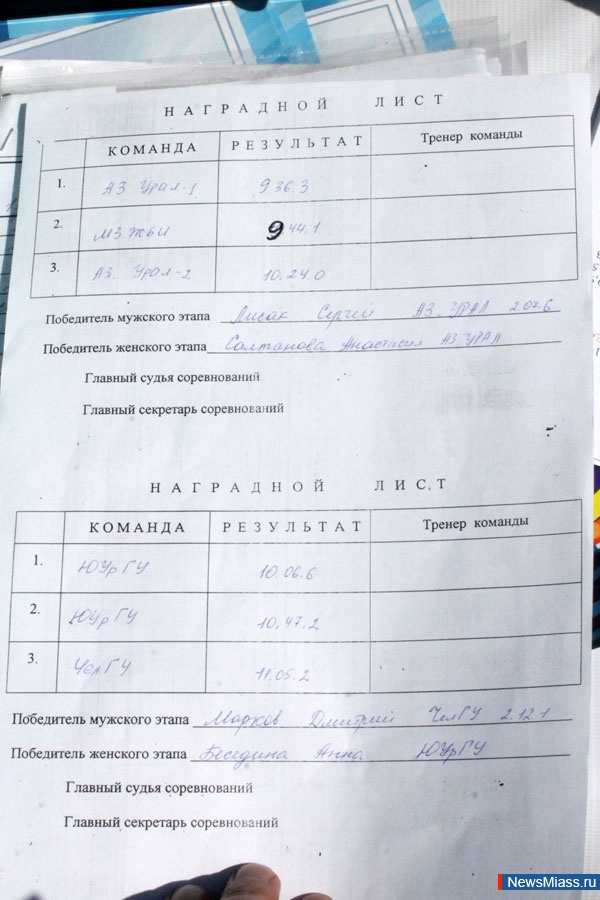 НАГРАДНОЙ ЛИСТ
КОМАНДА РЕЗУЛЬТАТ Тренер команды
1. АЗ Урал-1 9 36.3
2. МЗ ЖБИ 9 44.1
3. АЗ. Урал-2 10.24.0
Победитель мужского этапа Лисак Сергей АЗ. УРАЛ 2.07.6
Победитель женского этапа Салтанова Анастасия АЗ УРАЛ
Главный судья соревнований
Главный секретарь соревнований
НАГРАДНОЙ ЛИСТ
КОМАНДА РЕЗУЛЬТАТ Тренер команды
1. ЮУрГУ 10.06.6
2. ЮУрГУ 10.47.2
3. ЧелГУ 11.05.2
Победитель мужского этапа Марков Дмитрий ЧелГУ 2.12.1
Победитель женского этапа Беседина Анна ЮУрГУ
Главный судья соревнований
Главный секретарь соревнований
NewsMiass.ru